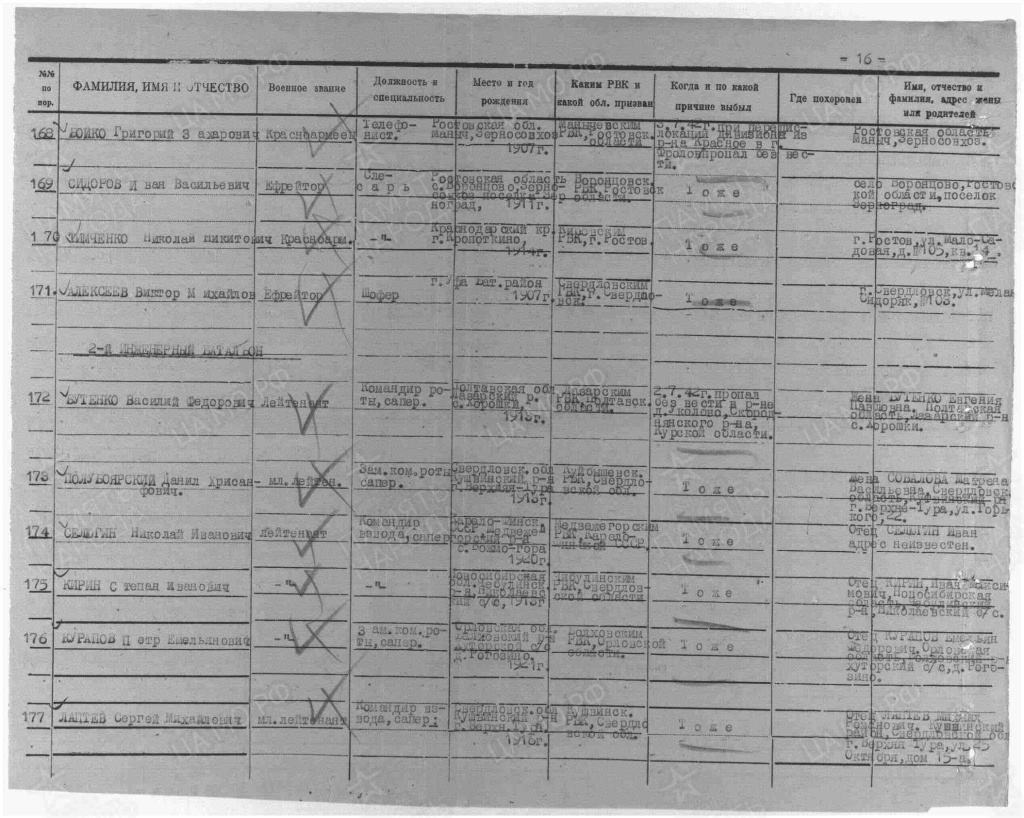 = 16 =
№№ по пор.
ФАМИЛИЯ, ИМЯ И ОТЧЕСТВО
Военное звание
Должность и специальность
Место и год рождения
Каким РВК и какой обл. призван
Когда и по какой причине выбыл
Где похоронен
Имя, отчество и фамилия, адрес жены или родителей
168 БОЙКО Григорий Захарович Красноармеец
Телефонист.
Ростовская обл. Маныч, Зерносовхоз 1907г.
Манычевским РВК, Ростовск. области
3.7.42г. при передислокации дивизиона из р-на Красное в г. Фролов пропал без вести.
Ростовская область Маныч, Зерносовхоз.
169 СИДОРОВ Иван Васильевич Ефрейтор
Слесарь
Ростовская область 1911г.
Воронцовск. РВК, Ростовск области.
Тоже
село Воронцово, Ростовской области, поселок Зерноград.
170 КИМЧЕНКО Николай Никитович Красноарм.
-"-
Краснодарский кр. г. Кропоткино, 1914г.
Кировским РВК, г. Ростов.
Тоже
г. Ростов, ул. Мало-Садовая, д. №105, кв. 14.
171. АЛЕКСЕЕВ Виктор Михайлов Ефрейтор
Шофер
г. Уфа Бат. район 1907г.
Свердловским РВК, г. Свердловск.
Тоже
г. Свердловск, ул. №103.
2-й ИНЖЕНЕРНЫЙ БАТАЛЬОН
172 БУТЕНКО Василий Федорович Лейтенант
Командир роты, сапер.
Полтавская обл Лазарский р. с. Хорошки, 1913г.
Лазарским РВК, Полтавск. области.
2.7.42г. пропал без вести в р-не д. Уколово, Скороднянского р-на, Курской области.
Жена БУТЕНКО Евгения Павловна, Полтавская область, Лазарский р-н с. Хорошки.
173 ПОЛУБОЯРСКИЙ Данил Хрисанфович. мл. лейтен.
Зам. ком. роты сапер.
Свердловск. обл Кушвинский р-н г. Верхняя-Тура 1913г.
Куйбышевск. РВК, Свердловской обл.
Тоже
Жена СОВАЛОВА Матрена Васильевна, Свердловск. область, г. Верхне-Тура, ул. Горького, 22.
174 СЕЛЮГИН Николай Иванович Лейтенант
Командир взвода, сапер
Карело-Финск ССР, Медвежегорский р-н 1920г.
Медвежегорским РВК, Карело-Финской СССР.
Тоже
Отец СЕЛЮГИН Иван адрес неизвестен.
175 КИРИН Степан Иванович
-"-
-"-
Новосибирская обл. Чебулинск. р-н, Николаевский с/с, 1913г.
Чебулинским РВК, Свердловской области
Тоже
Отец КИРИН Иван Максимович, Новосибирская область, Чебулинский р-н, Николаевский с/с.
176 КУРАПОВ Петр Емельянович
-"-
Зам. ком. роты, сапер.
Орловская обл. Болховский р-н Хуторской с/с д. Рогозино. 1921г.
Болховским РВК, Орловской области.
Тоже
Отец КУРАПОВ Емельян Федорович, Орловская область, Болховский р-н Хуторской с/с, д. Рогозино.
177 ЛАПТЕВ Сергей Михайлович мл. лейтенант
Командир взвода, сапер.
Свердловск. обл Кушвинский р-н г. Верхн. Тура, 1918г.
Кушвинск. РВК, Свердловской обл.
Тоже
Отец ЛАПТЕВ Михаил Романович, Кушвинский район, Свердловской обл г. Верхня Тура, ул. 25 Октября, дом 15-а.